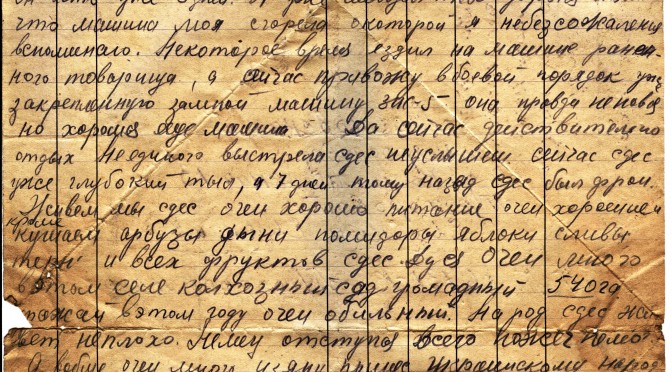 что машина моя сгорела о которой я небезсожаления
вспоминаю. Некоторое время ездил на машине ранен-
ного товарища, а сейчас привожу в боевой порядок уже
закрепленную замной машину зис-5 она правда неновая
но хорошая машина Да сейчас действительно
отдых неединого выстрела сдес неуслышем. сейчас сдес
уже глубокий тыл, а 7 дней тому назад сдес был фрон.
Живем мы сдес очен хорошо питание очен хорошие и
кроме
кушаем арбузы дыни помидоры яблоки сливы
терн и всех фруктов сдес очен много
в этом селе колхозный сад громадный 540га
в этом году очен обильный. Народ сдес жи
вет неплохо. Немец отступая всего пожеч немог
А вобще очен много принес Украинскому народ